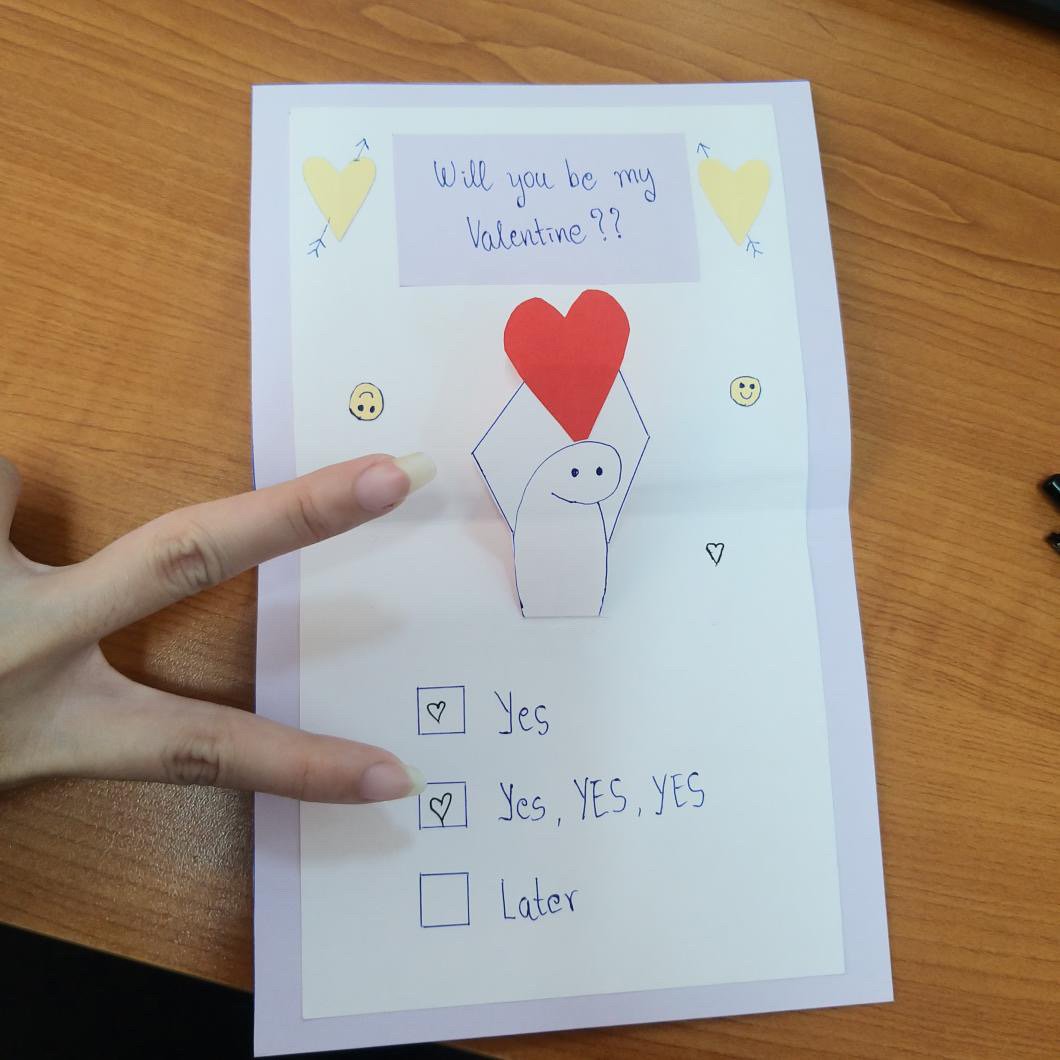 Will you be my
Valentine??
Yes
Yes, YES, YES
Later